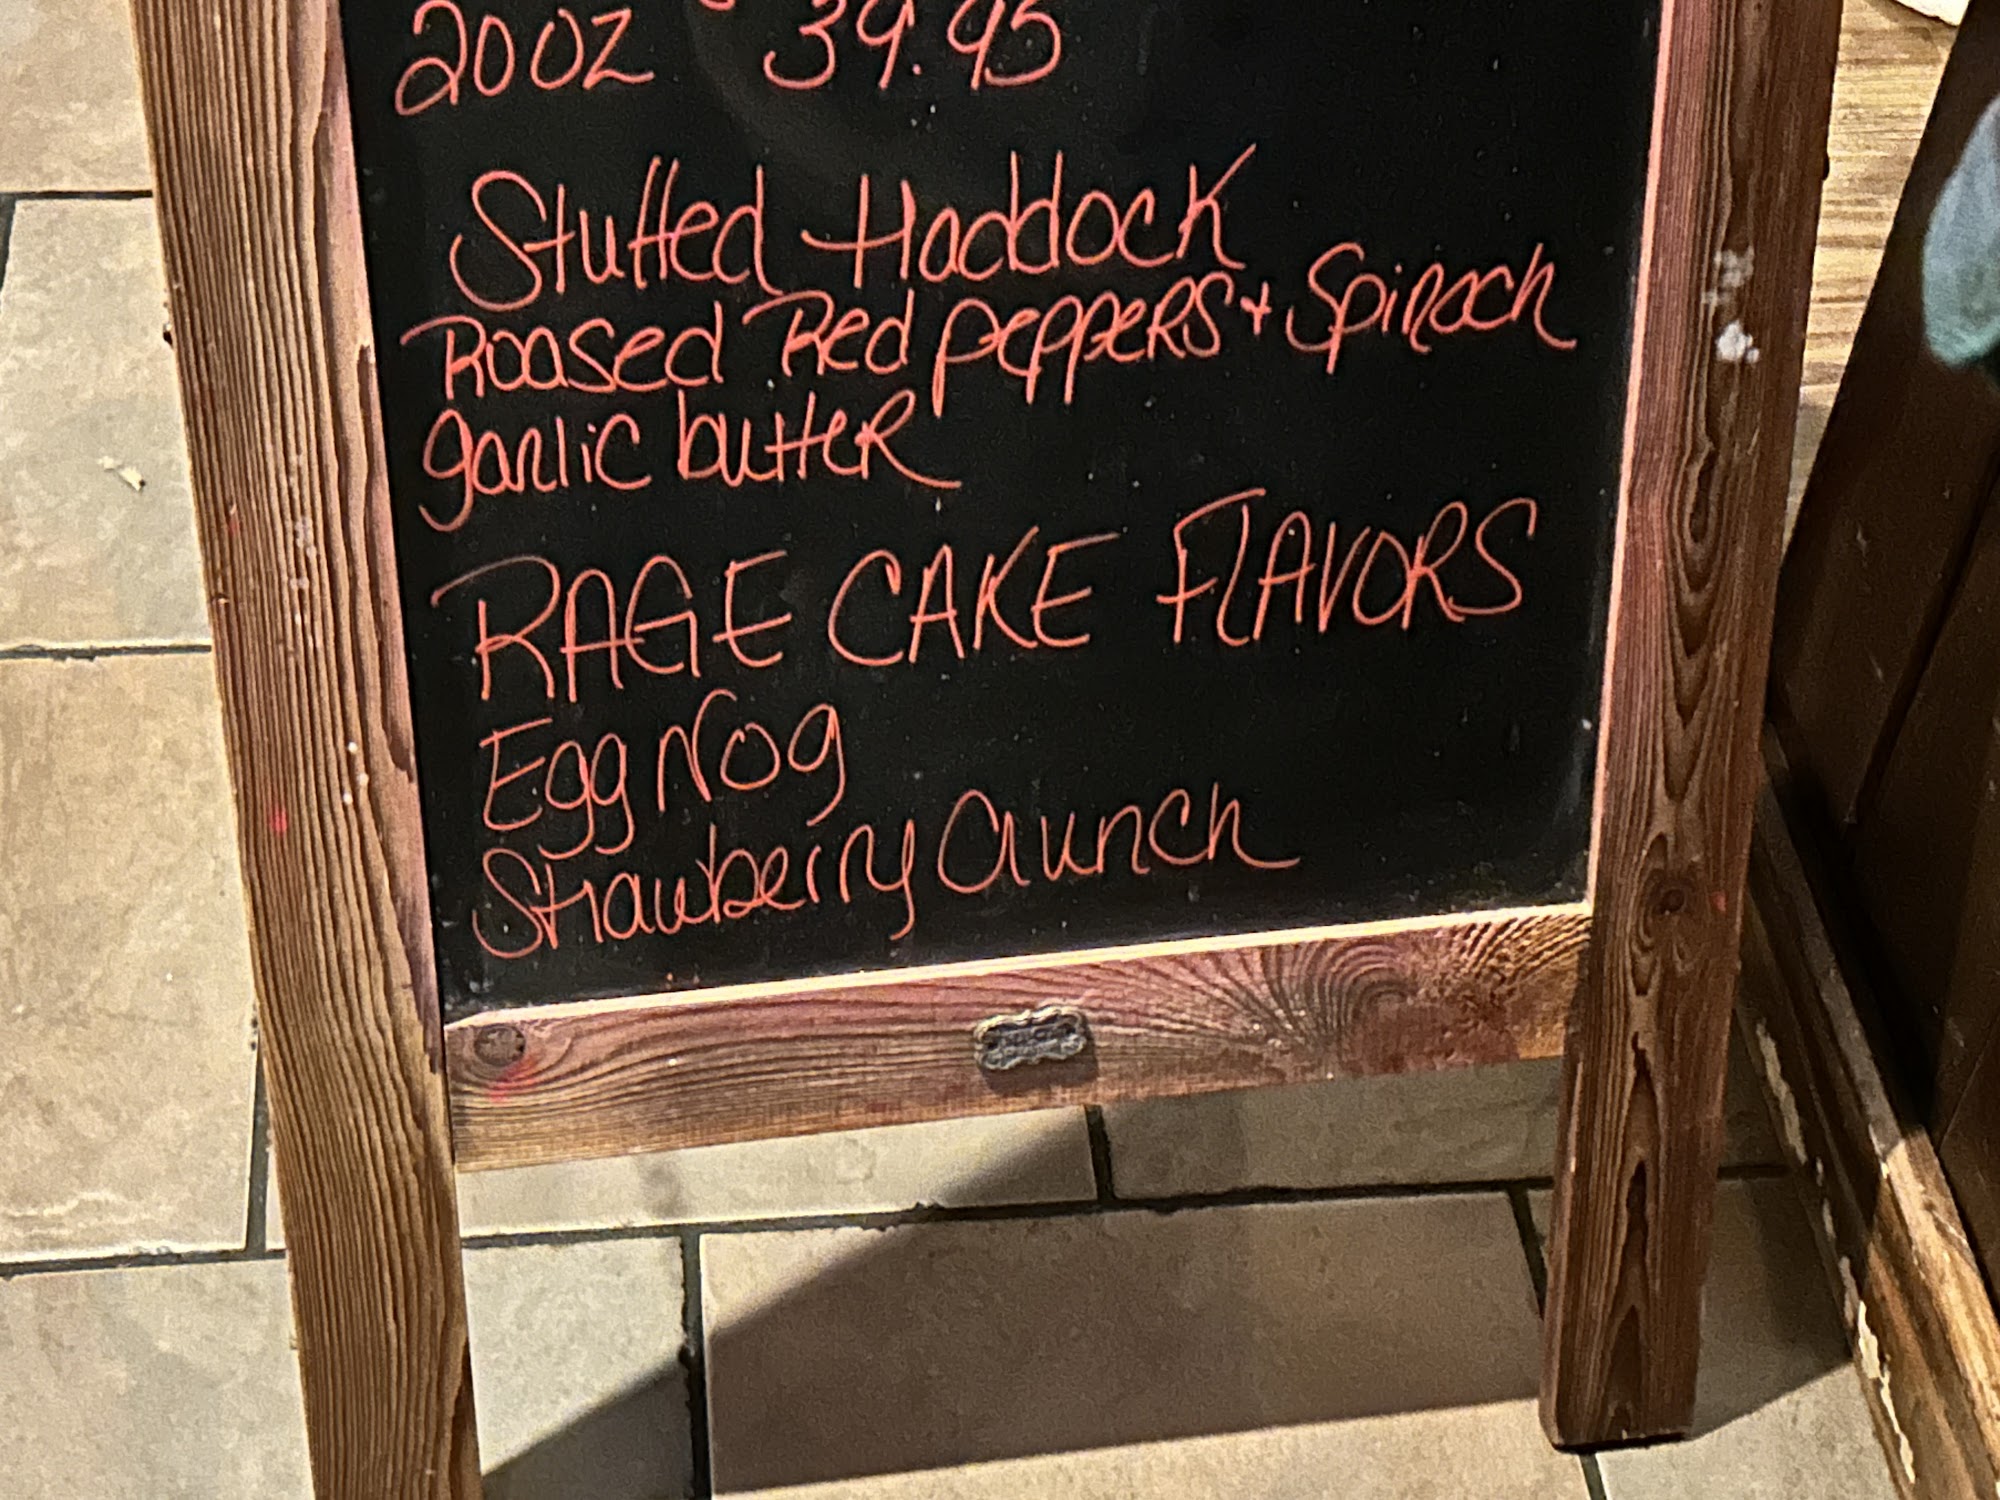 20oz 39.95
Stuffed Haddock
Roased Red peppers + Spinach
garlic butter
RAGE CAKE FLAVORS
Egg Nog
Strawberry Crunch